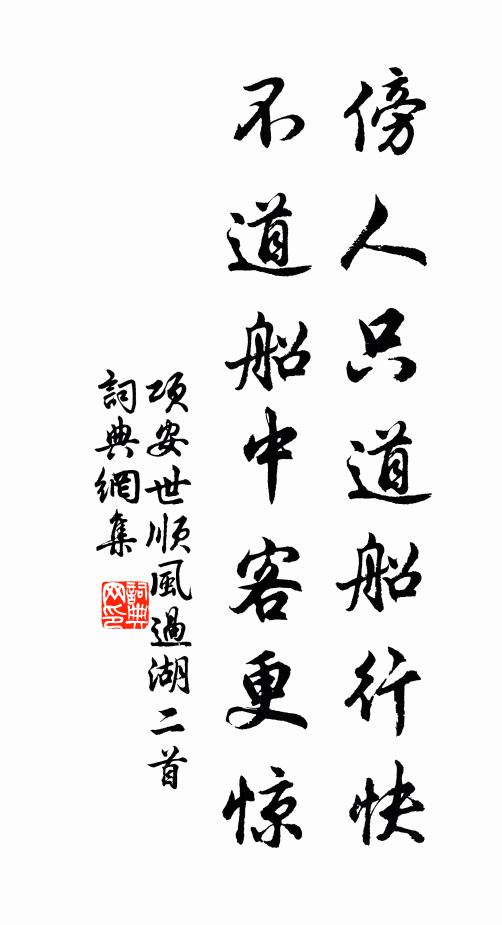 傍人只道船行快
不道船中客更惊
项安世顺風過湖二首
詞典網集
詞典网印